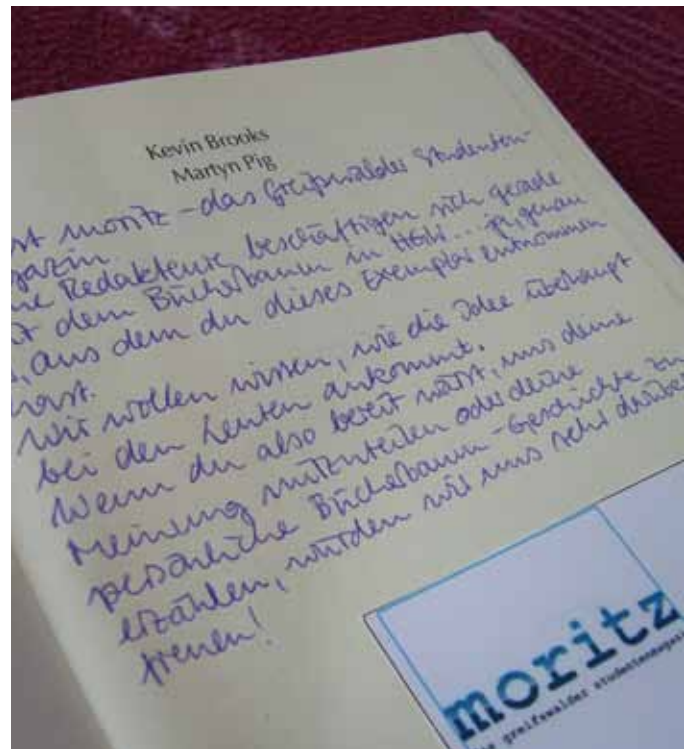 Kevin Brooks
Martyn Pig
st moritz - das Greifswalder Studenten-
gazin
ne Redakteure beschäftigen sich gerade
it dem Bücherbaum in HGW... ja, genau
, aus dem du dieses Exemplar entnommen
hast.
Wir wollen wissen, wie die Idee überhaupt
bei den Leuten ankommt.
Wenn du also bereit wärst, uns deine
Meinung mitzuteilen oder deine
persönliche Bücherbaum-Geschichte zu
erzählen, würden wir uns sehr darüber
freuen!
moritz
greifswalder studentenmagazi